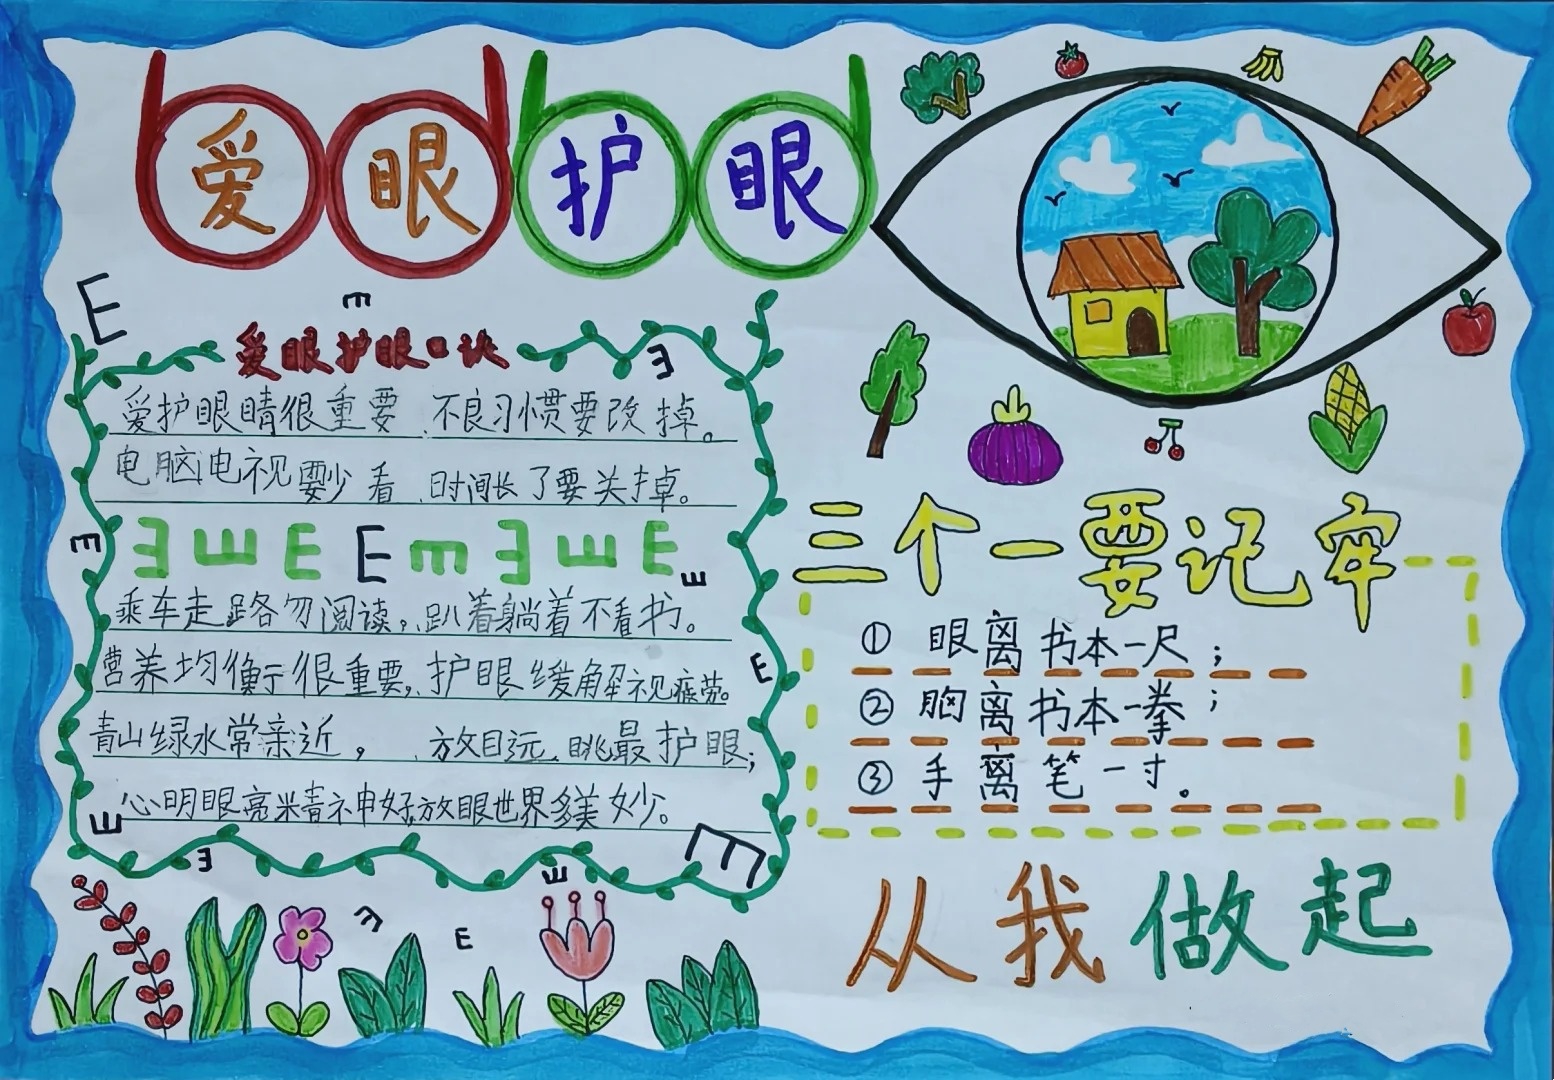 爱眼护眼
E
E
爱眼护眼口诀
E
爱护眼睛很重要,不良习惯要改掉。
电脑电视要少看,时间长了要关掉。
E E E E E E E E E
E
乘车走路勿阅读,趴着躺着不看书。
营养均衡很重要,护眼缓解视疲劳。
E
青山绿水常亲近,放目远眺最护眼;
心明眼亮米青礻申好,放眼世界多美妙。
E
E
E
E
E
E
三个一要记牢
① 眼离书本一尺;
② 胸离书本一拳;
③ 手离笔一寸。
从我做起